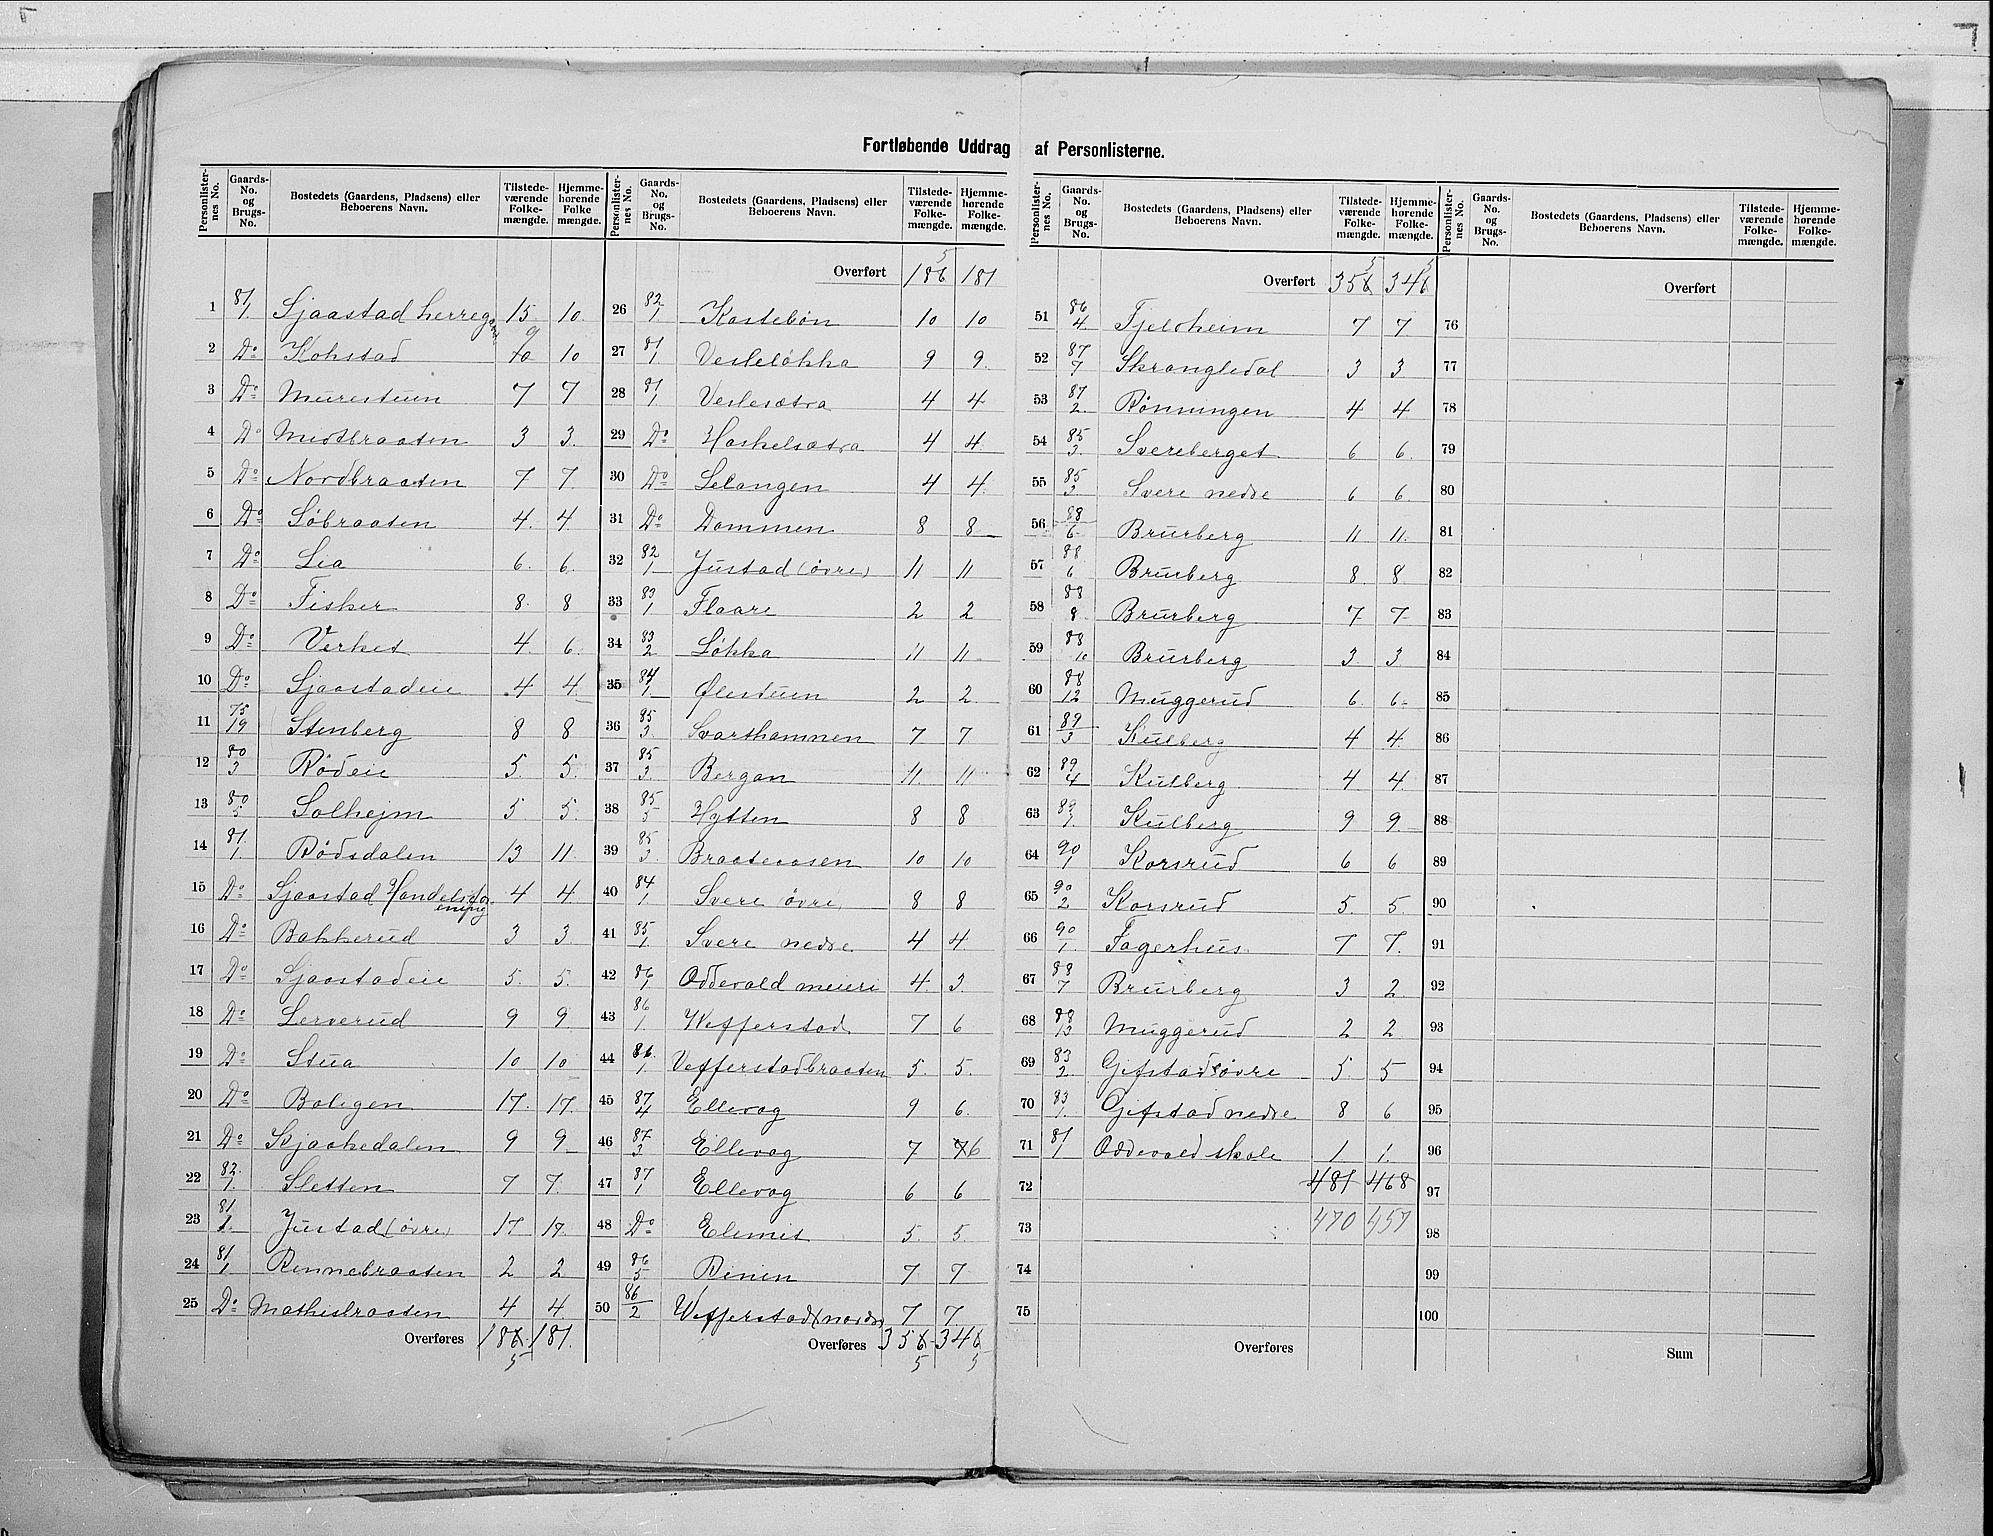 Fortløbende Uddrag af Personlisterne.
Personlister-nes No. | Gaards-No. og Brugs-No. | Bostedets (Gaardens, Pladsens) eller Beboerens Navn. | Tilstede-værende Folke-mængde. | Hjemme-hørende Folke mængde.
1 81/1 Sjaastad herregaard 15 10
2 Do Kohstad 9 10
3 Do Murestuen 7 7
4 Do Midtbraaten 3 3
5 Do Nordbraaten 7 7
6 Do Søbraaten 4 4
7 Do Lia 6 6
8 Do Fisker 8 8
9 Do Verket 4 6
10 Do Sjaastadeie 4 4
11 75/19 Stenberg 8 8
12 80/3 Rødeie 5 5
13 80/5 Solhejm 5 5
14 81/1 Rødsdalen 13 11
15 Do Sjaastad Handelsforening 4 4
16 Do Bakkerud 3 3
17 Do Sjaastadeie 5 5
18 Do Lerverud 9 9
19 Do Stua 10 10
20 Do Boligen 17 17
21 Do Skjaakedalen 9 9
22 82/1 Sletten 7 7
23 81/1 Justad (øvre) 17 17
24 81/1 Rennebraaten 2 2
25 Do Mathisbraaten 4 4
Overføres 186 5 181
Personlister-nes No. | Gaards-No. og Brugs-No. | Bostedets (Gaardens, Pladsens) eller Beboerens Navn. | Tilstede-værende Folke-mængde. | Hjemme-hørende Folke-mængde.
Overført 186 5 181
26 82/1 Kostebøn 10 10
27 81/1 Vesleløkka 9 9
28 81/1 Veslesætra 4 4
29 Do Haskelsætra 4 4
30 Do Selangen 4 4
31 Do Dammen 8 8
32 82/1 Justad (øvre) 11 11
33 83/1 Flaare 2 2
34 83/2 Løkka 11 11
35 84/1 Ølestuen 2 2
36 85/3 Svarthamnen 7 7
37 85/3 Bergan 11 11
38 85/5 Hytten 8 8
39 85/3 Braateaasen 10 10
40 84/1 Svere øvre 8 8
41 85/1 Svere nedre 4 4
42 86/1 Oddevald meieri 4 3
43 86/1 Wefferstad 7 6
44 86/1 Vefferstadbraaten 5 5
45 87/4 Ellevog 9 6
46 87/3 Ellevog 7 6
47 87/1 Ellevog 6 6
48 Do Elemit 5 5
49 86/5 Renen 7 7
50 86/2 Wefferstad (nordre) 7 7
Overføres 356 5 346 5
Personlister-nes No. | Gaards-No. og Brugs-No. | Bostedets (Gaardens, Pladsens) eller Beboerens Navn. | Tilstede-værende Folke-mængde. | Hjemme-hørende Folke-mængde.
Overført 356 5 346 5
51 86/4 Fjeldheim 7 7
52 87/7 Skrangledal 3 3
53 87/2 Rønningen 4 4
54 85/3 Svereberget 6 6
55 85/3 Svere nedre 6 6
56 88/6 Brurberg 11 11
57 88/6 Brurberg 8 8
58 88/8 Brurberg 7 7
59 88/10 Brurberg 3 3
60 88/12 Muggerud 6 6
61 89/3 Kulberg 4 4
62 89/4 Kulberg 4 4
63 89/1 Kulberg 9 9
64 90/1 Korsrud 6 6
65 90/2 Korsrud 5 5
66 90/1 Fagerhus 7 7
67 88/7 Brurberg 3 2
68 88/13 Muggerud 2 2
69 83/2 Gifstad øvre 5 5
70 83/1 Gifstad nedre 8 6
71 81/1 Oddevald skole 1 1
72 481 468
73 470 457
74
75
Overføres
Personlister-nes No. | Gaards-No. og Brugs-No. | Bostedets (Gaardens, Pladsens) eller Beboerens Navn. | Tilstede-værende Folke-mængde. | Hjemme-hørende Folke-mængde.
Overført
76
77
78
79
80
81
82
83
84
85
86
87
88
89
90
91
92
93
94
95
96
97
98
99
100
Sum